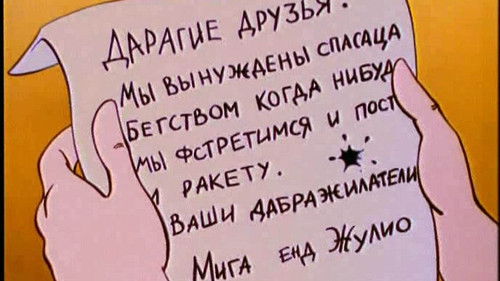 ДАРАГИЕ ДРУЗЬЯ.
МЫ ВЫНУЖДЕНЫ СПАСАЦА
БЕГСТВОМ КОГДА НИБУД
МЫ ФСТРЕТИМСЯ И ПОСТ
РАКЕТУ.
ВАШИ ДАБРАЖИЛАТЕЛИ
МИГА ЕНД ЖУЛИО